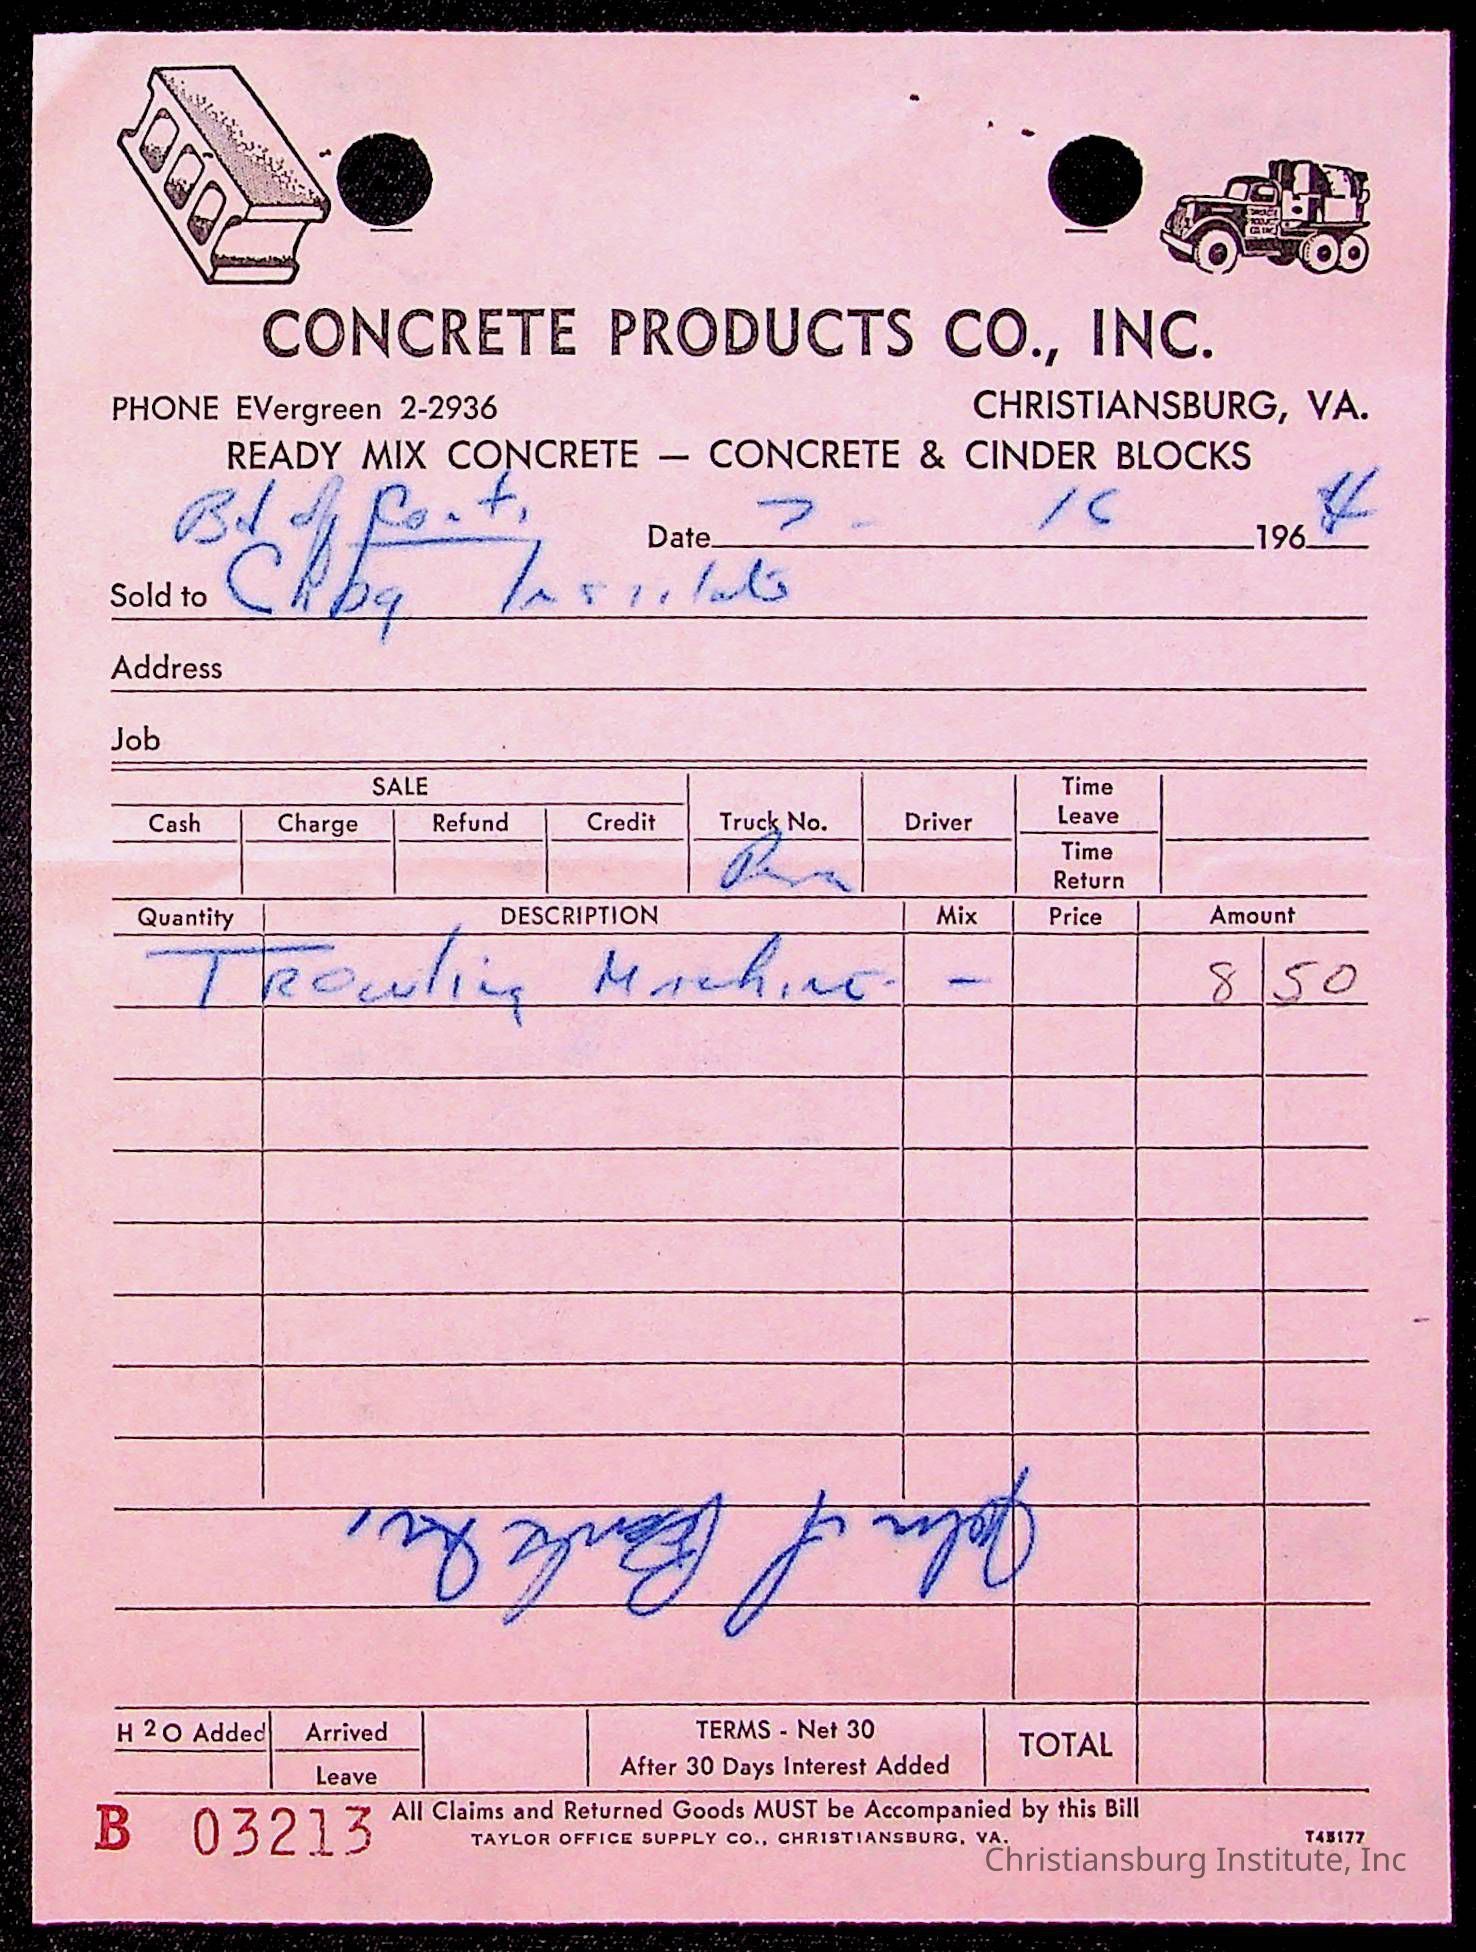 CONCRETE PRODUCTS CO., INC.
PHONE EVergreen 2-2936 CHRISTIANSBURG, VA.
READY MIX CONCRETE — CONCRETE & CINDER BLOCKS
Bd of Cont.
Date 7 - 16 1964
Sold to Chbg Institute
Address
Job
SALE
Cash Charge Refund Credit Truck No. Driver Time Leave
Time Return
Quantity DESCRIPTION Mix Price Amount
Trowling Machine - 8 50
John
H2O Added Arrived TERMS - Net 30 TOTAL
Leave After 30 Days Interest Added
B 03213 All Claims and Returned Goods MUST be Accompanied by this Bill
TAYLOR OFFICE SUPPLY CO., CHRISTIANSBURG, VA. T45177
Christiansburg Institute, Inc